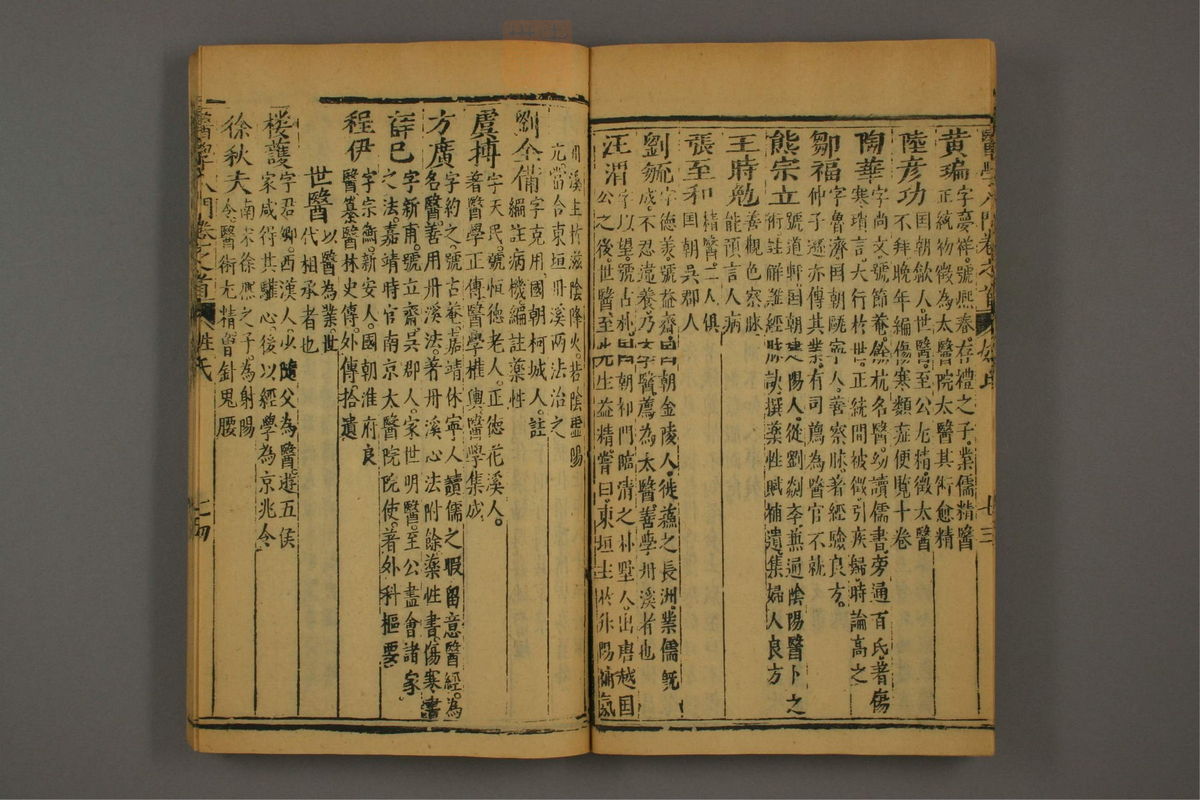 黃瑞 字夢祥。號熙春。存禮之子。業儒精醫
正統物徵為太醫院太醫其術愈精
陸彥功 囯朝歙人。世醫。至公尤精。徵太醫
不拜晚年編傷寒類証便覽十卷
陶華 字尚文。號節菴。餘杭名醫。幼讀儒書旁通百氏。著傷
寒瑣言。大行於世。正統間被徵。引疾歸。時論高之
鄒福 字魯濟囯朝甌寧人。善察脉著經驗良方。
仲子遜亦傳其業。有司薦為醫官不就
熊宗立 號道軒囯朝建陽人。從劉剡李。兼通陰陽醫卜之
術註解難經脉訣撰藥性賦補遺集婦人良方
王時勉 善觀色察脉
能預言人病
張至和 囯朝吳郡人
精醫二人俱
劉毓 字德美。號益齋囯朝金陵人。徙蘓之長洲。業儒既
成。不忍違養。乃李醫薦為太醫善學丹溪者也
汪渭 字以望。號古朴。囯朝祁門臨清之朴墅人。出唐越囯
公之後。世醫至先生益精嘗曰。東垣主於升陽補氣
醫學入門卷之首 姓氏 七三
丹溪主於滋陰降火。若陰虛陽
亢當合東垣丹溪两法治之
劉全備 字克用。國朝柯城人。註
編註病機。編註藥性
虞摶 字天民。號恒德老人。正德花溪人。
著醫學正傳醫學權輿醫學集成
方廣 字約之。號古菴。嘉靖休寧人讀儒之暇留意醫經。為
名醫。善用丹溪法。著丹溪心法附餘藥性書。傷寒書
薛己 字新甫。號立齋。吳郡人。家世明醫。至公盡會諸家
之法。嘉靖時官南京大醫院院使。著外科樞要
程伊 字宗衡。新安人。國朝淮府良
醫纂醫林史傳。外傳。拾遺
世醫 以醫為業。世
代相承者也
樓護 字君卿。西漢人。少隨父為醫。遊五侯
家咸得其驩心。後以經學為京兆令
徐秋夫 南宋徐熈之子。為射陽
令醫術尤精曾針鬼腰
醫學入門卷之首 姓氏 七四